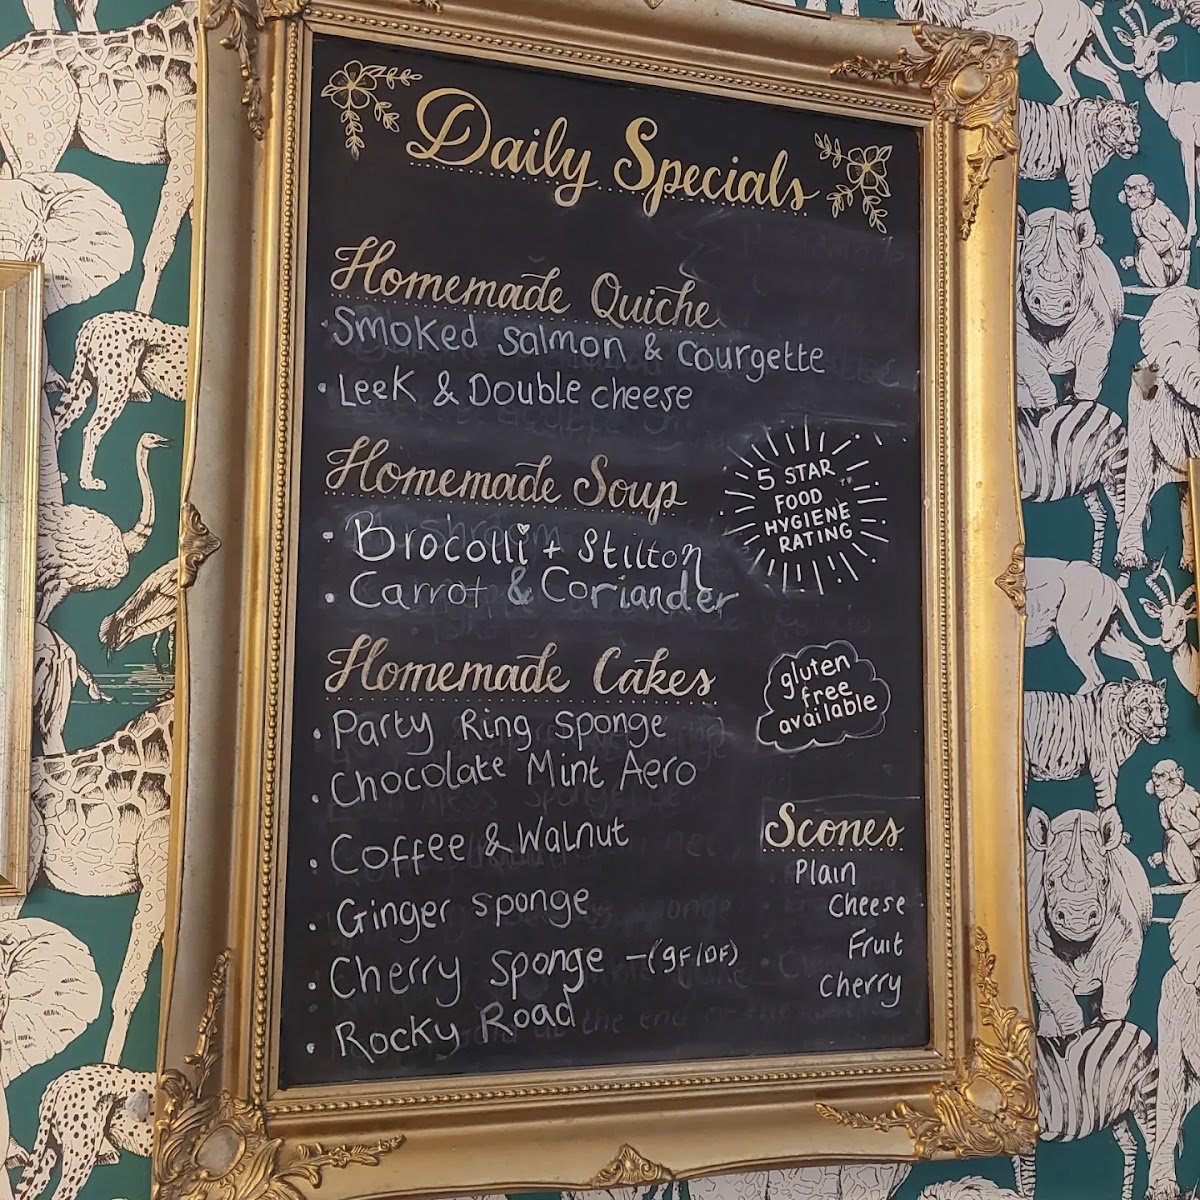 Daily Specials
Homemade Quiche
• Smoked salmon & Courgette
• Leek & Double cheese
Homemade Soup
- Brocolli + Stilton
• Carrot & Coriander
5 STAR
FOOD
HYGIENE
RATING
Homemade Cakes
• Party Ring sponge
• Chocolate Mint Aero
• Coffee & Walnut
• Ginger sponge
• Cherry sponge - (gF/DF)
• Rocky Road
gluten
free
available
Scones
Plain
Cheese
Fruit
Cherry